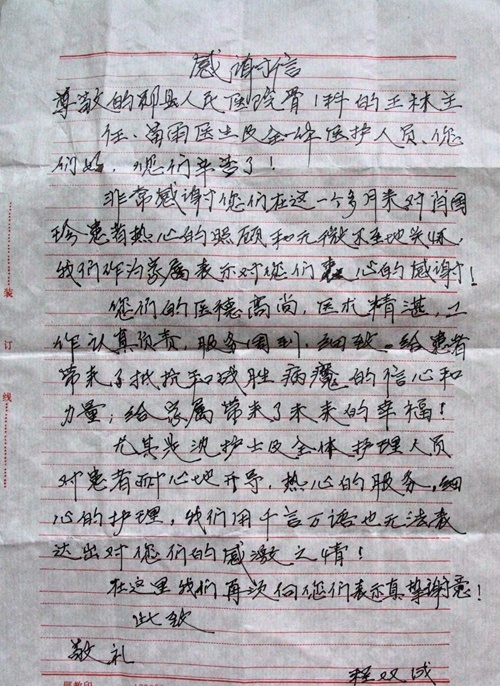 感谢信
尊敬的祁县人民医院骨1科的王林主
任、雷雨医生及全体医护人员、您
们好，您们辛苦了！
非常感谢您们在这一个多月来对肖国
珍患者热心的照顾和无微不至地关怀，
我们作为家属表示对您们衷心的感谢！
您们的医德高尚，医术精湛，工
作认真负责，服务周到，细致。给患者
带来了抵抗和战胜病魔的信心和
力量，给家属带来了未来的幸福！
尤其是沈护士及全体护理人员
对患者耐心地开导，热心的服务，细
心的护理，我们用千言万语也无法表
达出对您们的感激之情！
在这里我们再次向您们表示真挚谢意！
此致
敬礼
程双成
装
订
线